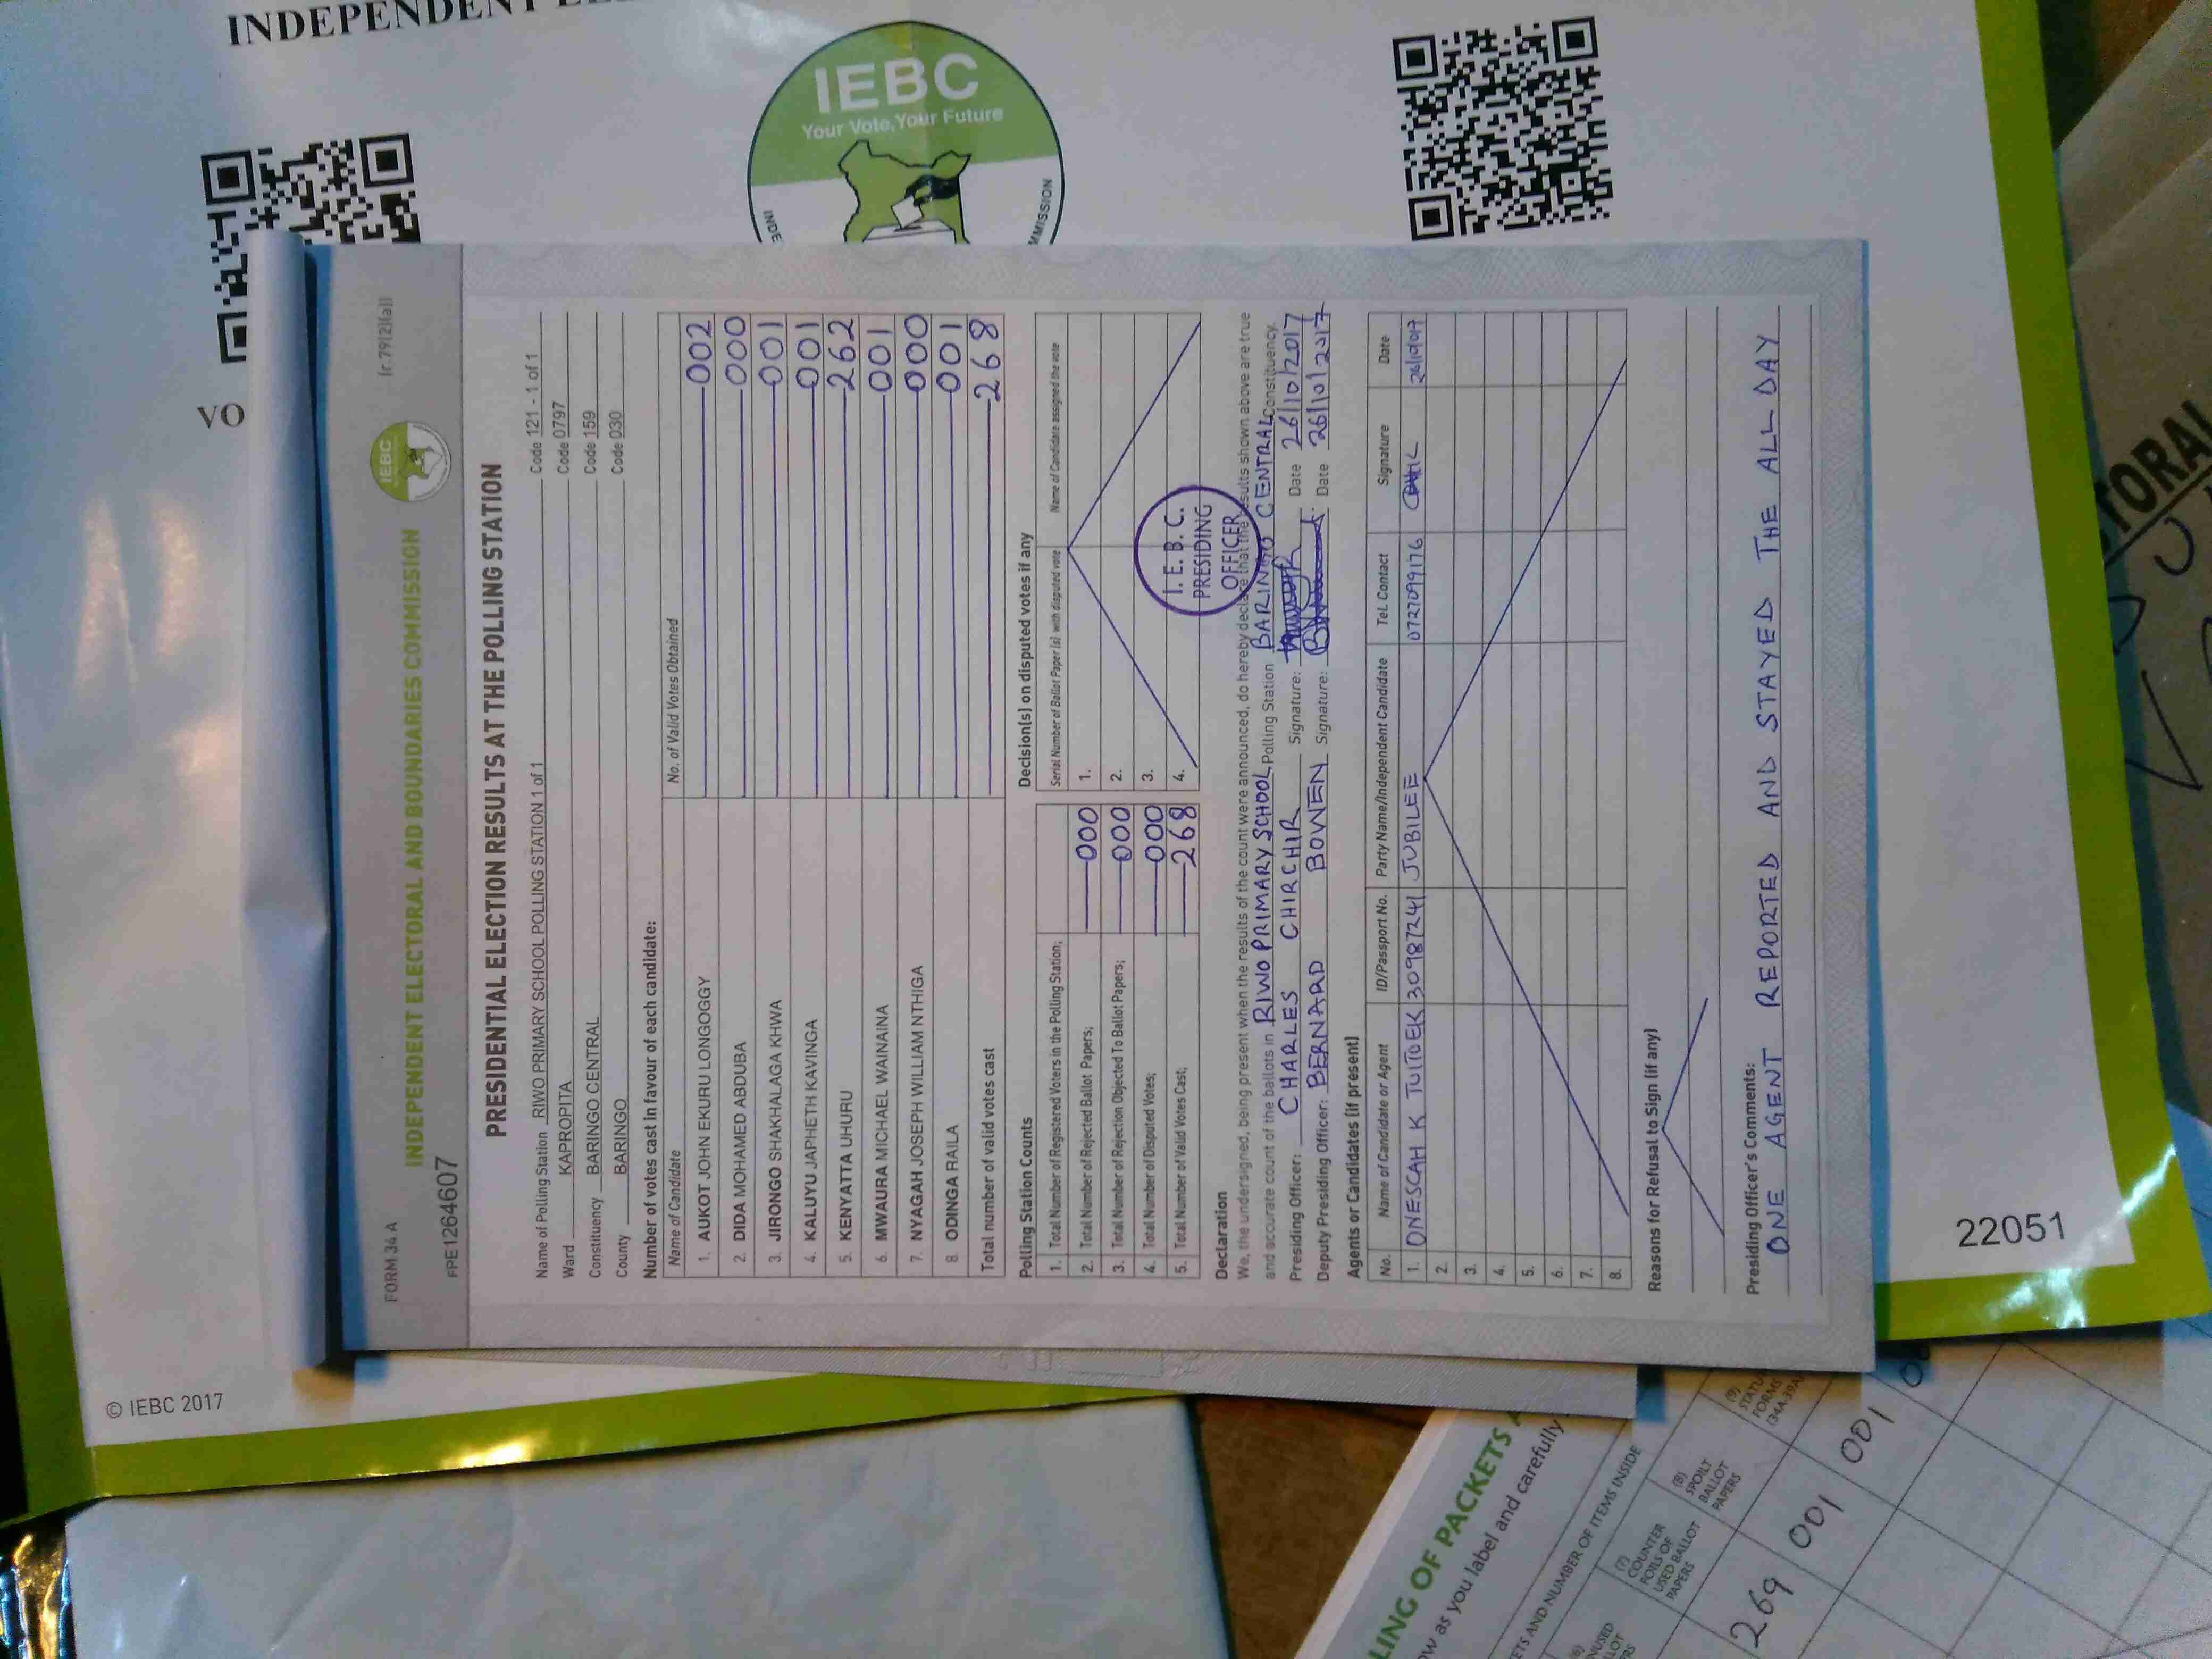 INDEPENDENT
VO
IEBC
Your Vote, Your Future
INDE
MMISSION
© IEBC 2017
FORM 34 A
INDEPENDENT ELECTORAL AND BOUNDARIES COMMISSION
IEBC
(r.79(2)(a))
FPE1264607
PRESIDENTIAL ELECTION RESULTS AT THE POLLING STATION
Name of Polling Station RIWO PRIMARY SCHOOL POLLING STATION 1 of 1 Code 121 - 1 of 1
Ward KAPROPITA Code 0797
Constituency BARINGO CENTRAL Code 159
County BARINGO Code 030
Number of votes cast in favour of each candidate:
Name of Candidate No. of Valid Votes Obtained
1. AUKOT JOHN EKURU LONGOGGY 002
2. DIDA MOHAMED ABDUBA 000
3. JIRONGO SHAKHALAGA KHWA 001
4. KALUYU JAPHETH KAVINGA 001
5. KENYATTA UHURU 262
6. MWAURA MICHAEL WAINAINA 001
7. NYAGAH JOSEPH WILLIAM NTHIGA 000
8. ODINGA RAILA 001
Total number of valid votes cast 268
Polling Station Counts
1. Total Number of Registered Voters in the Polling Station;
2. Total Number of Rejected Ballot Papers; 000
3. Total Number of Rejection Objected To Ballot Papers; 000
4. Total Number of Disputed Votes; 000
5. Total Number of Valid Votes Cast; 268
Decision(s) on disputed votes if any
Serial Number of Ballot Paper (s) with disputed vote Name of Candidate assigned the vote
1.
2.
3.
4.
I. E. B. C.
PRESIDING
OFFICER
Declaration
We, the undersigned, being present when the results of the count were announced, do hereby declare that the results shown above are true
and accurate count of the ballots in RIWO PRIMARY SCHOOL Polling Station BARINGO CENTRAL Constituency.
Presiding Officer: CHARLES CHIRCHIR Signature: Date 26/10/2017
Deputy Presiding Officer: BERNARD BOWEN Signature: Date 26/10/2017
Agents or Candidates (if present)
No. Name of Candidate or Agent ID/Passport No. Party Name/Independent Candidate Tel. Contact Signature Date
1. ONESCAH K TUITOEK 30987241 JUBILEE 0727099176
2.
3.
4.
5.
6.
7.
8.
Reasons for Refusal to Sign (if any)
Presiding Officer's Comments:
ONE AGENT REPORTED AND STAYED THE ALL DAY
22051
TORAL
LING OF PACKETS
ow as you label and carefully
ETS AND NUMBER OF ITEMS INSIDE
(7)
COUNTER
FOILS OF
USED BALLOT
PAPERS
(8)
SPOILT
BALLOT
PAPERS
(9)
STATU
FORMS
(34A,39A
269 001 001